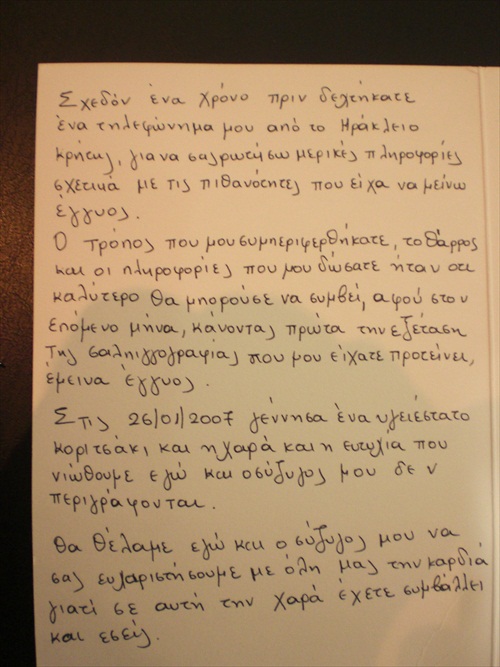 Σχεδόν ένα χρόνο πριν δεχτήκατε
ένα τηλεφώνημα μου από το Ηράκλειο
Κρήτης, για να σας ρωτήσω μερικές πληροφορίες
σχετικά με τις πιθανότητες που είχα να μείνω
έγγυος.
Ο τρόπος που μου συμπεριφερθήκατε, το θάρρος
και οι πληροφορίες που μου δώσατε ήταν οτι
καλύτερο θα μπορούσε να συμβεί, αφού στον
επόμενο μήνα, κάνοντας πρώτα την εξέταση
της σαλπιγγογραφίας που μου είχατε προτείνει,
έμεινα έγγυος.
Στις 26/01/2007 γέννησα ένα υγειέστατο
κοριτσάκι και η χαρά και η ευτυχία που
νιώθουμε εγώ και ο σύζυγος μου δεν
περιγράφονται.
Θα θέλαμε εγώ και ο σύζυγος μου να
σας ευχαριστήσουμε με όλη μας την καρδιά
γιατί σε αυτή την χαρά έχετε συμβάλλει
και εσείς.